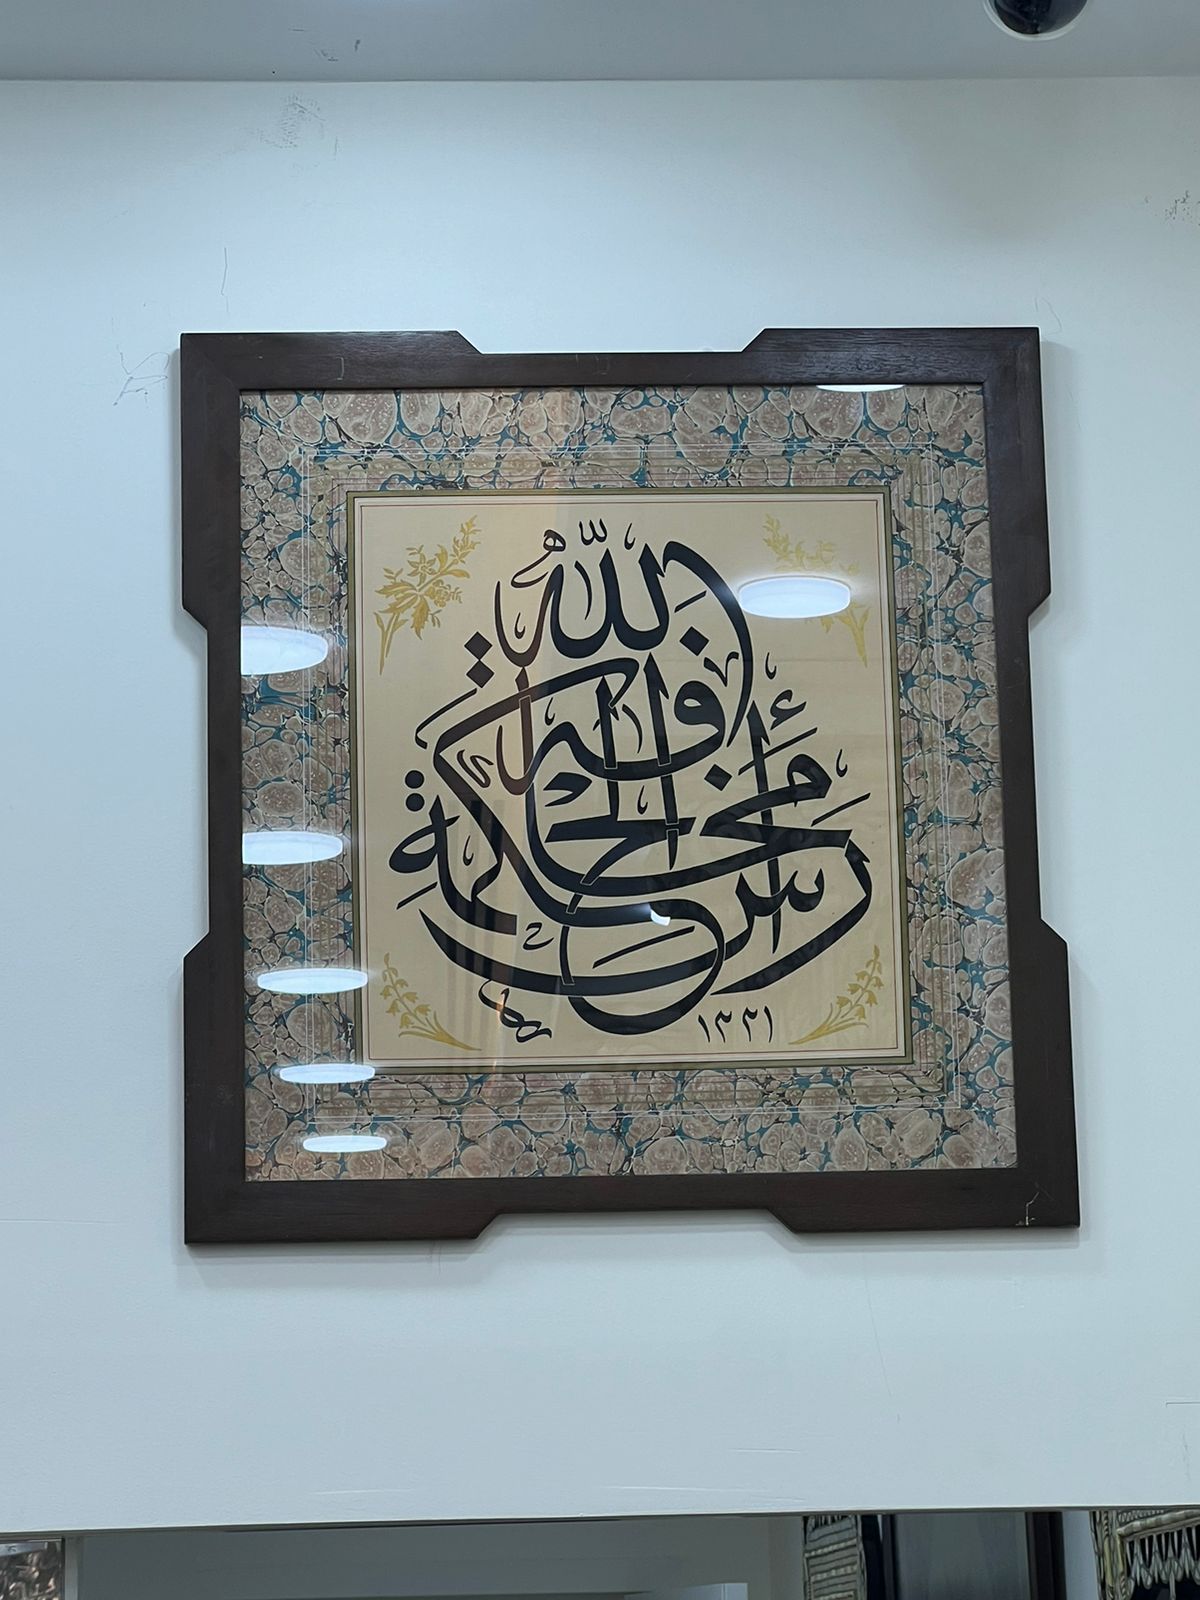 رَأْسُ الْحِكْمَةِ مَخَافَةُ اللّٰهِ
١٣٣١